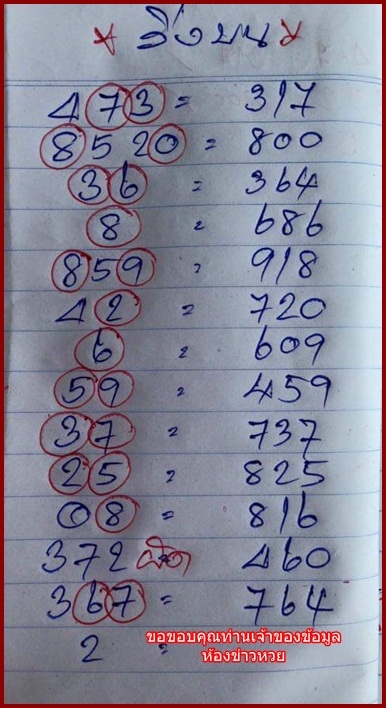 วิ่งบน
473 = 317
8520 = 800
36 = 364
8 = 686
859 = 918
42 = 720
6 = 609
59 = 459
37 = 737
25 = 825
08 = 816
372 ผิด 460
367 = 764
2 =
ขอขอบคุณท่านเจ้าของข้อมูล
ห้องข่าวหวย